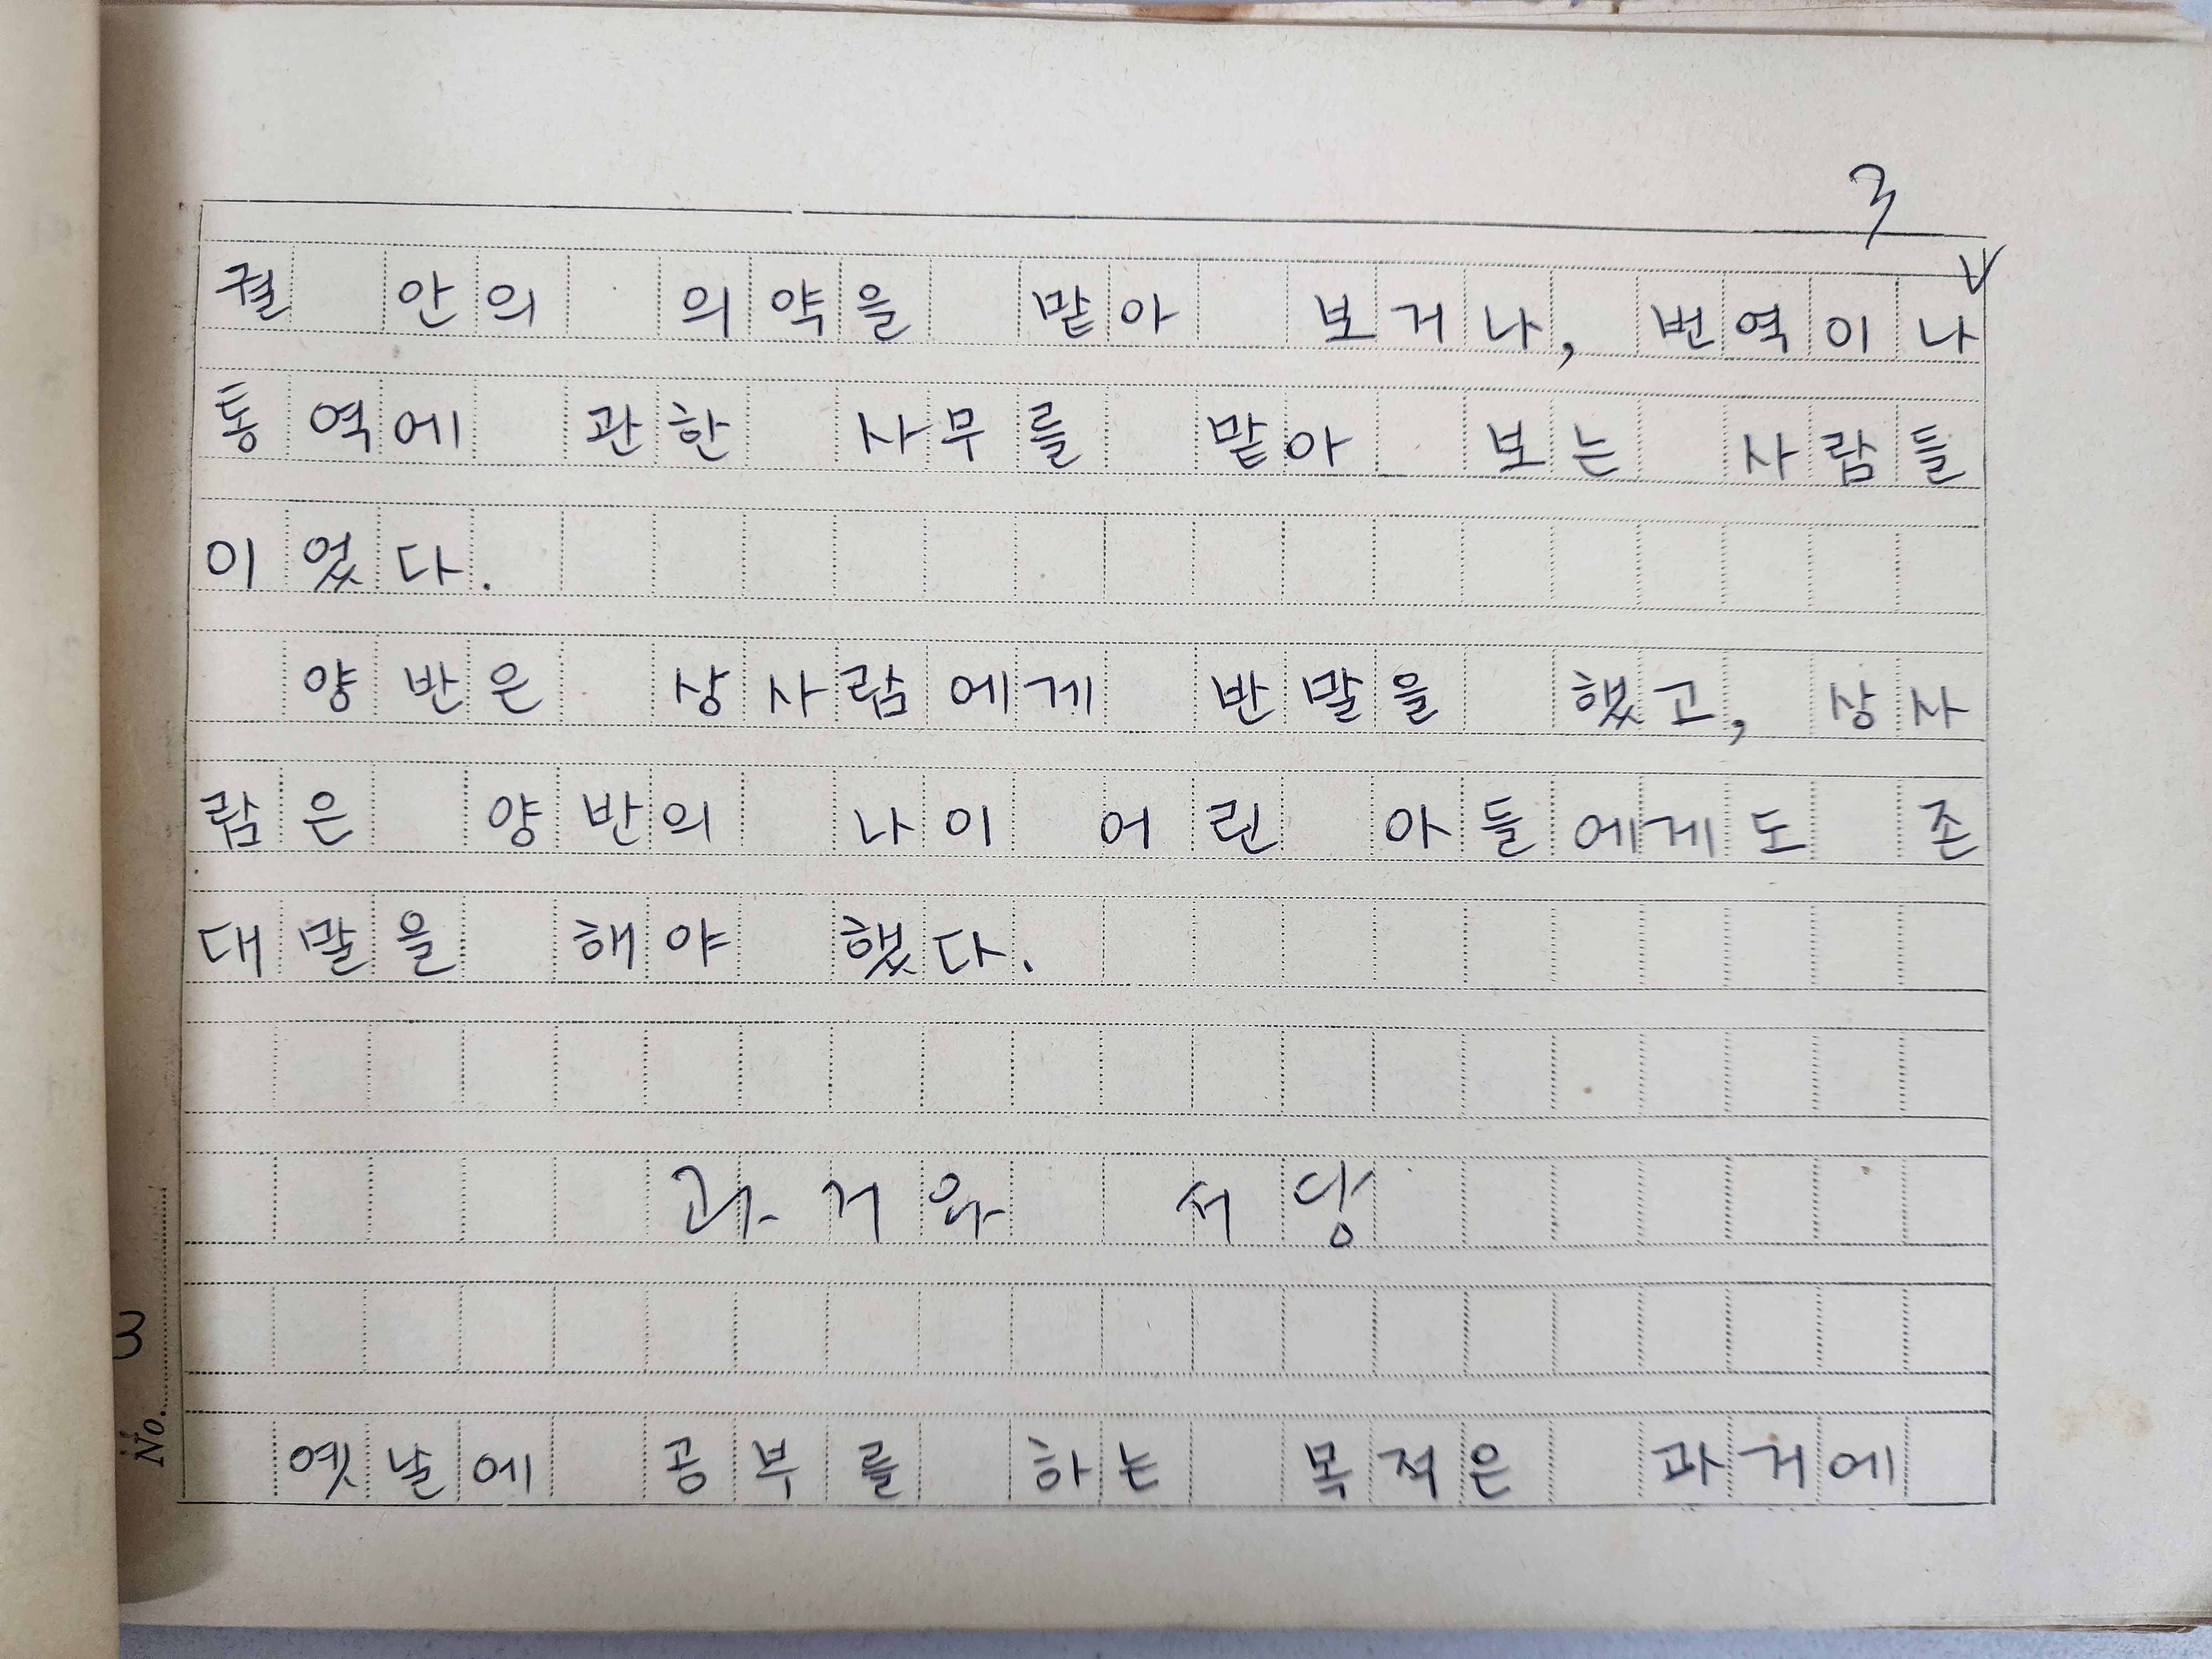 3
궐 안의 의약을 맡아 보거나, 번역이나
통역에 관한 사무를 맡아 보는 사람들
이었다.
양반은 상사람에게 반말을 했고, 상사
람은 양반의 나이 어린 아들에게도 존
대말을 해야 했다.
과거와 서당
옛날에 공부를 하는 목적은 과거에
No. 3